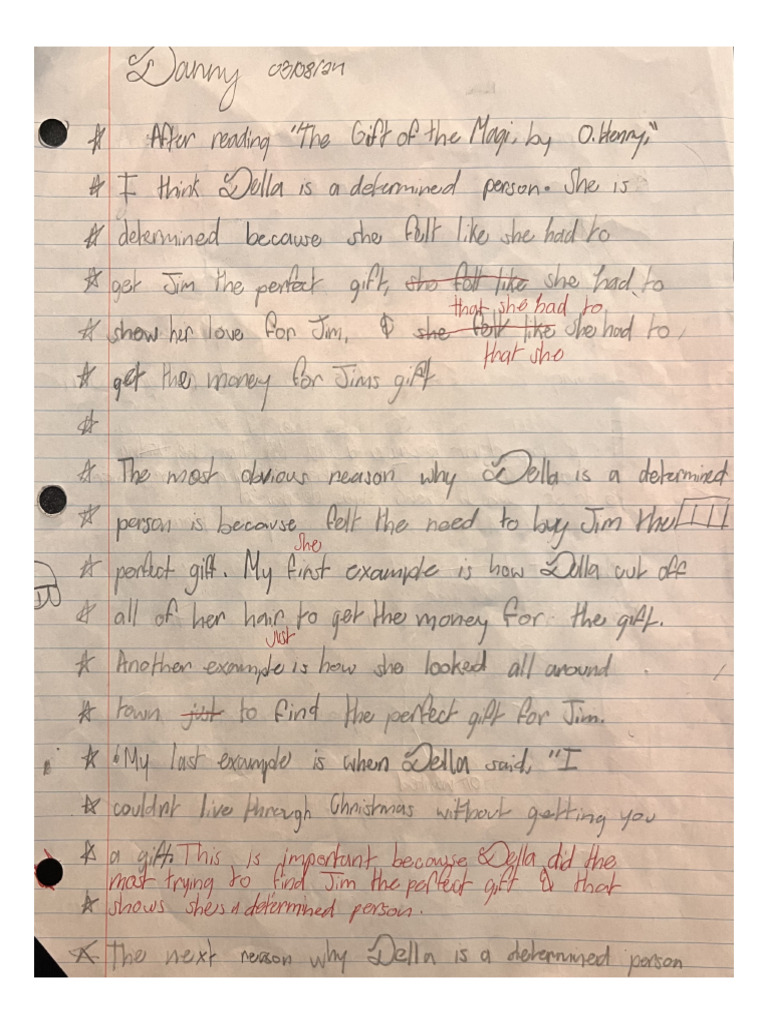 Danny 03/08/24
After reading "The Gift of the Magi, by O. Henry,"
I think Della is a determined person. She is
determined because she felt like she had to
get Jim the perfect gift, she felt like she had to
that she had to
show her love for Jim, & she felt like she had to
that she
get the money for Jims gift
The most obvious reason why Della is a determined
person is because felt the need to buy Jim the
she
perfect gift. My first example is how Della cut off
all of her hair to get the money for the gift.
just
Another example is how she looked all around
town just to find the perfect gift for Jim.
My last example is when Della said, "I
couldnt live through Christmas without getting you
a gift. This is important because Della did the
most trying to find Jim the perfect gift & that
shows she's a determined person.
The next reason why Della is a determined person